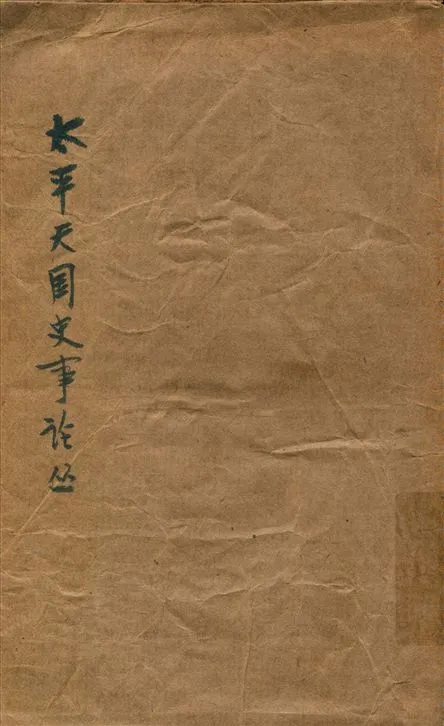 太平天国史事论丛